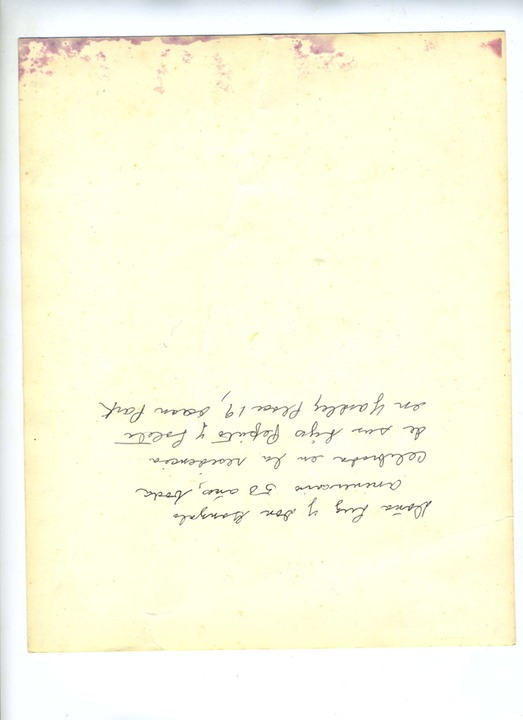 Doña Luz y don Gonzalo
aniversario 50 año, boda
celebrada en la residencia
de sus hijo Pepito y
en Yardley Place 19, Ocean Park